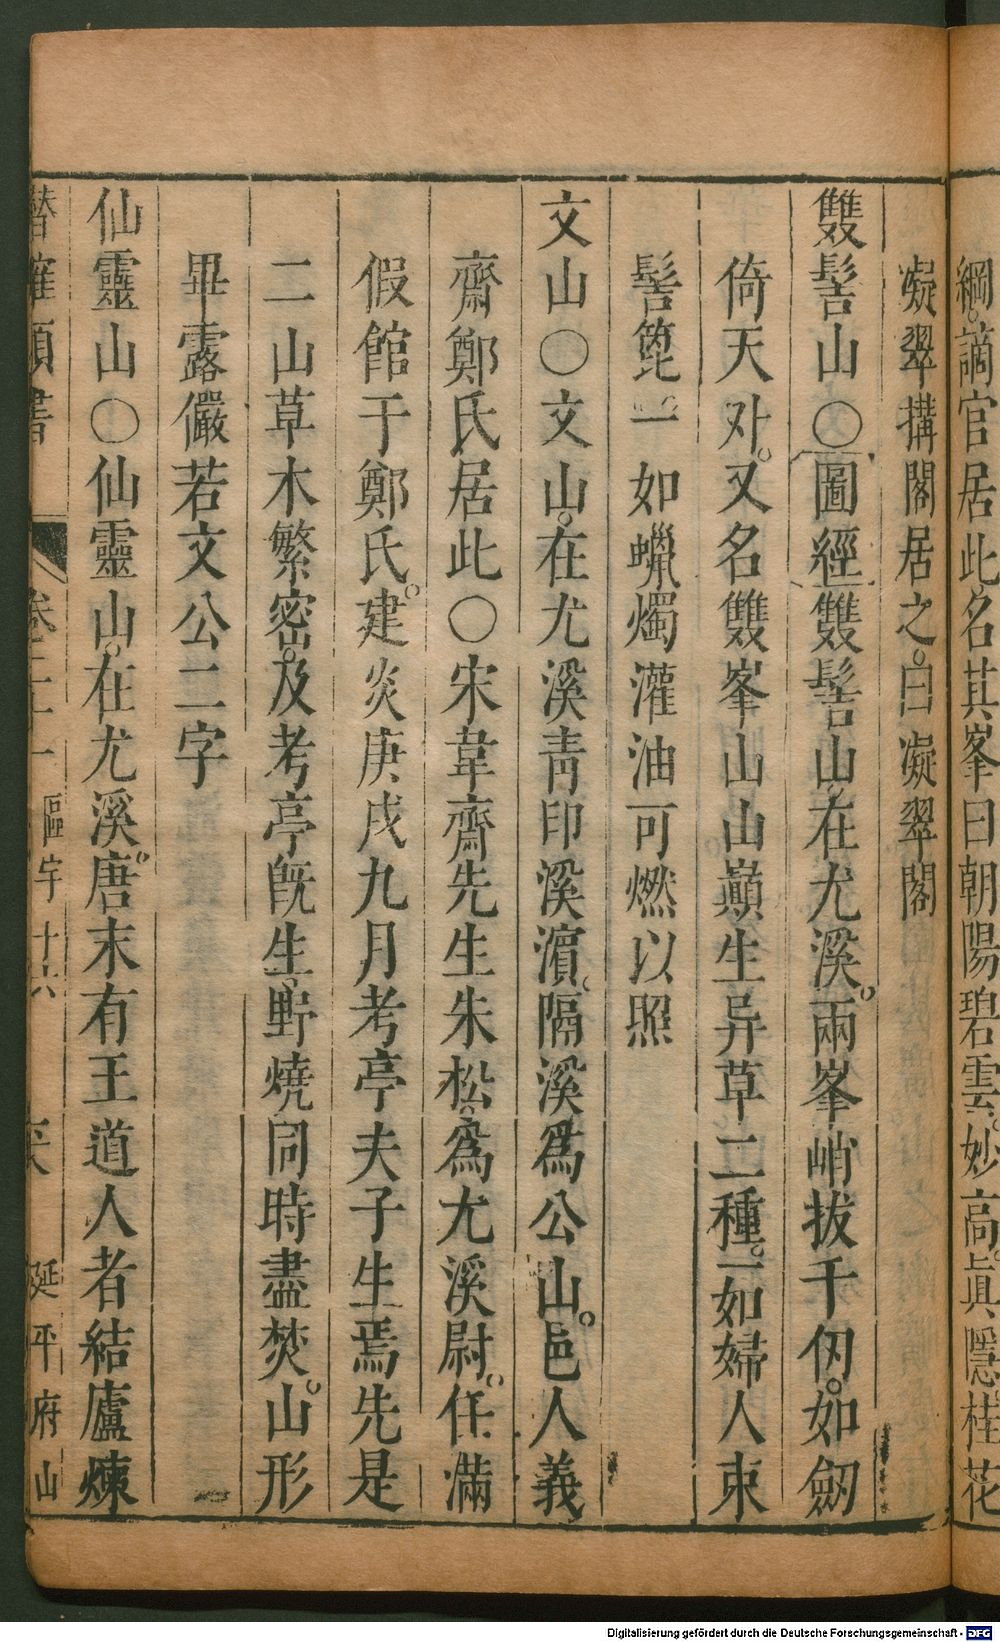 綱。謫官居此名其峯曰朝陽碧雲。妙高。眞隱桂花
凝翠搆閣居之。曰凝翠閣
雙髻山〇圖經雙髻山在尤溪。兩峯峭拔千仞。如劔
倚天外。又名雙峯山山巔生异草二種。一如婦人束
髻篦一如蠟燭灌油可燃以照
文山〇文山。在尤溪靑印溪濵。隔溪爲公山。邑人義
齋鄭氏居此〇宋韋齋先生朱松。爲尤溪尉。任滿
假館于鄭氏。建炎庚戌九月考亭夫子生焉先是
二山草木繁密。及考亭旣生野燒同時盡焚。山形
畢露儼若文公二字
仙靈山〇仙靈山。在尤溪。唐末有王道人者結廬煉
潛確類書
卷二十一 區宇十六
延平府山
Digitalisierung gefördert durch die Deutsche Forschungsgemeinschaft - DFG